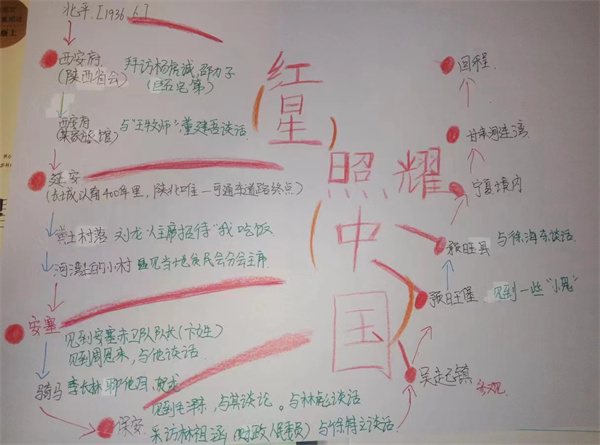 北平.[1936.6]
西安府
(陕西省会)
拜访杨虎城,邵力子
西安府
(某家旅馆)
与"王牧师",董建吾谈话
延安
(长城以南400华里,陕北唯一可通车道路终点)
黄土村落 刘龙火主席招待"我"吃饭
河湾上的小村 遇见当地贫民会分会主席.
安塞
见到安塞赤卫队队长(卞先生)
见到周恩来,与他谈话.
骑马 李长林
保安
见到毛泽东,与其谈论。与林彪谈话
采访林祖涵(财政人民委员)与徐特立谈话
红星
照耀
中
国
吴起镇
参观
预旺堡 见到一些"小鬼"
预旺县 与徐海东谈话.
宁夏境内
甘肃河连湾
回程